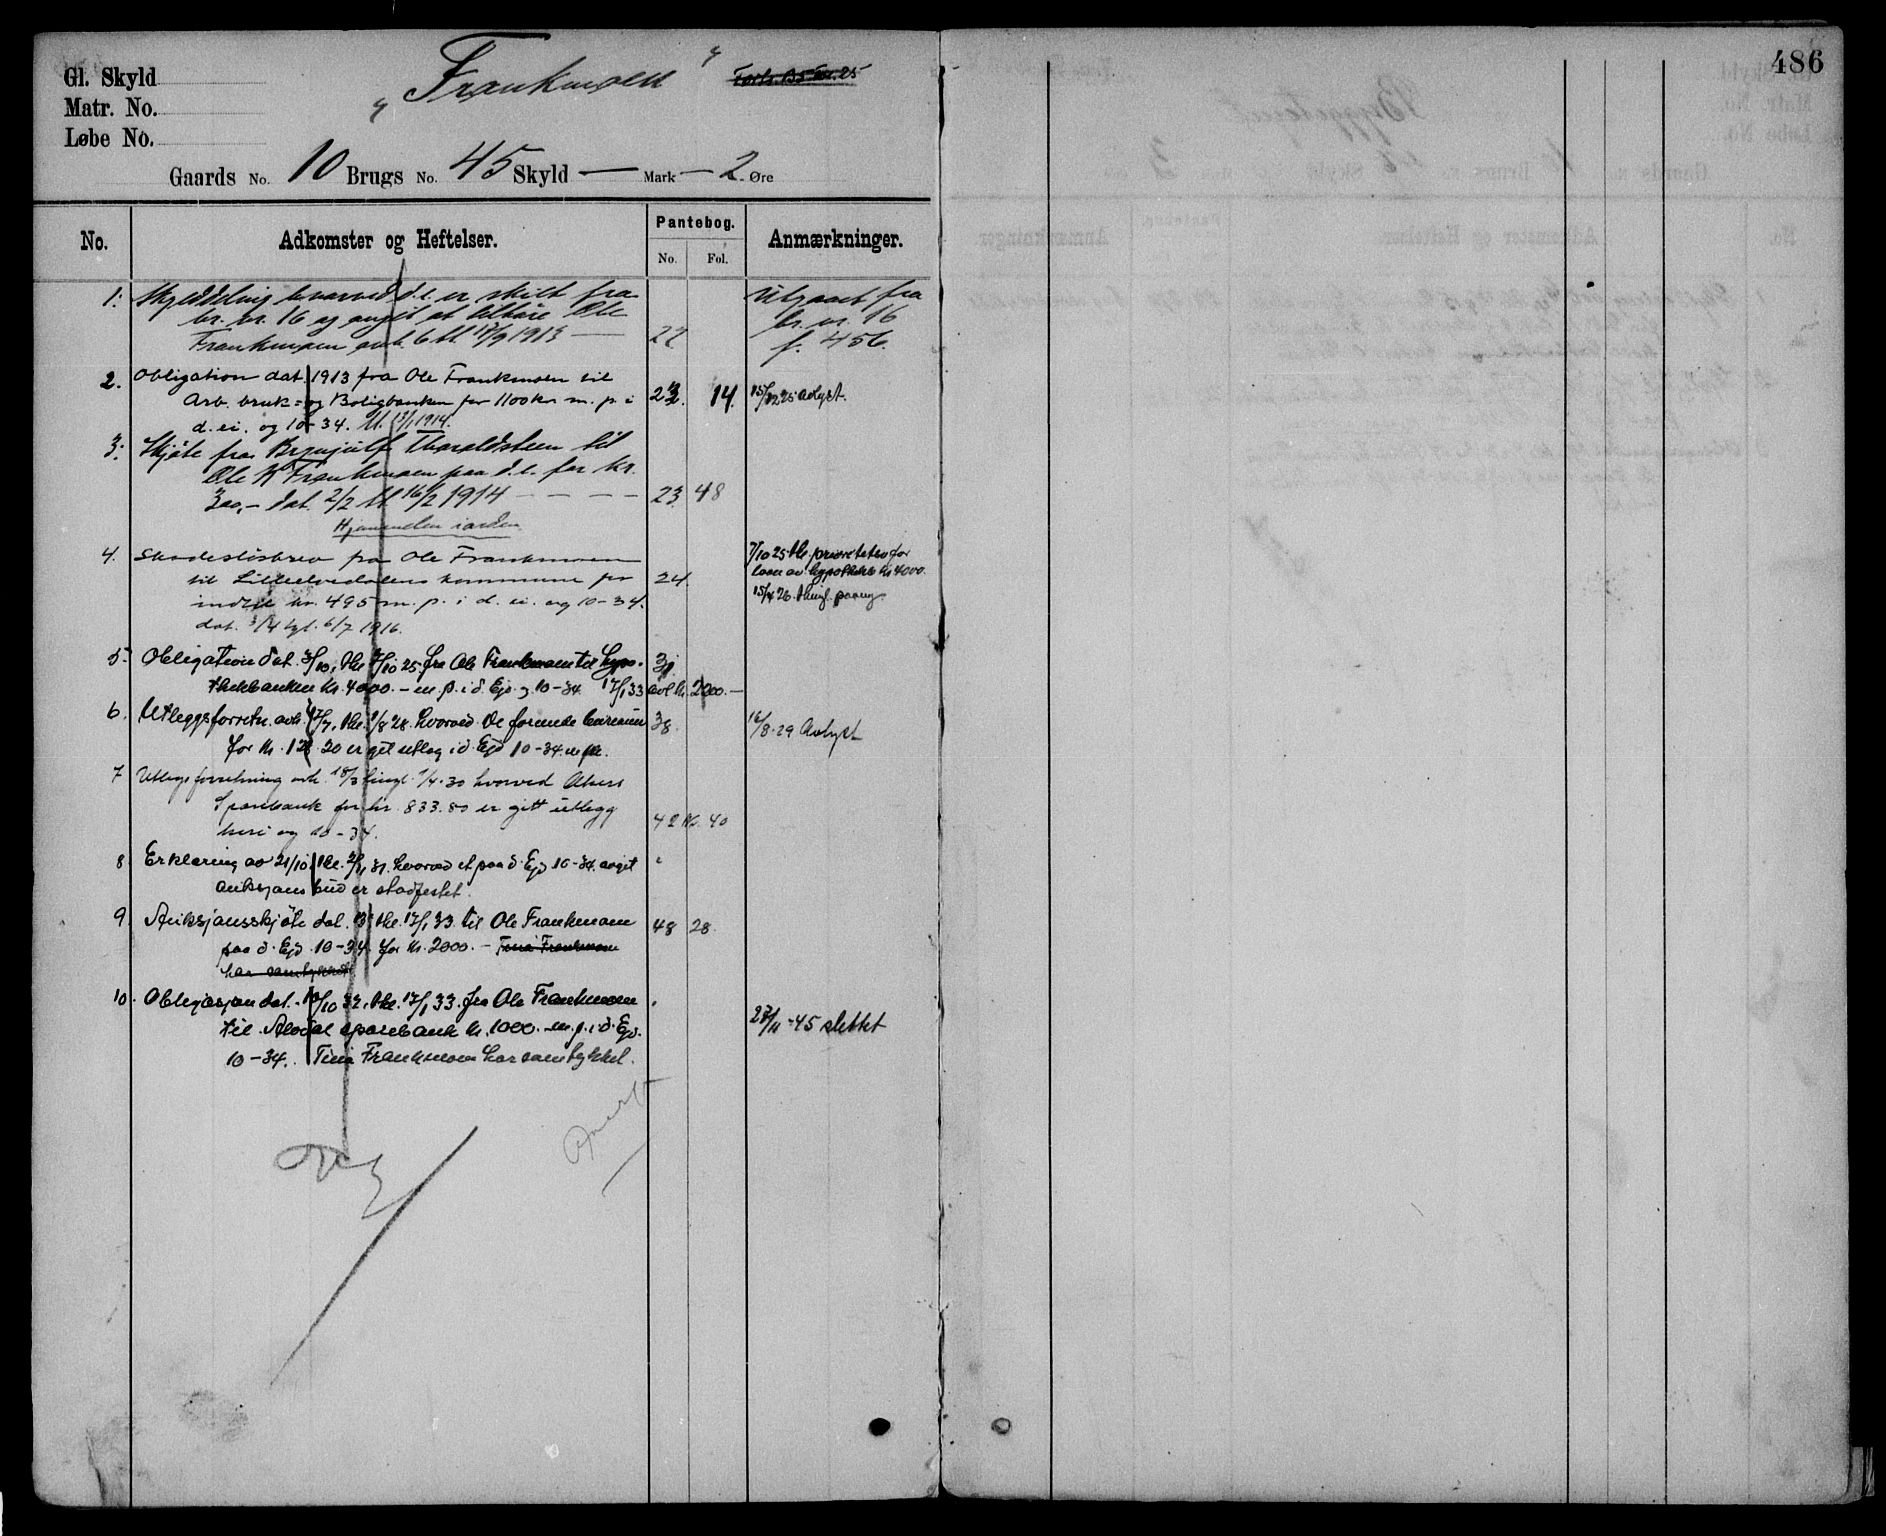 486
Gl. Skyld
Matr. No.
Løbe No.
"Frankmoen"
Gaards No. 10 Brugs No. 45 Skyld — Mark — 2 Øre
No.
Adkomster og Heftelser.
Pantebog.
No. Fol.
Anmærkninger.
1. Skylddeling hvorved d.e. er skilt fra
br. nr. 16 og angit at tilhøre Ole
Frankmoen avh. 6 tl 17/9 1913 — 22
Utgaaet fra
br. nr. 16
f. 456.
2. Obligation dat. 1913 fra Ole Frankmoen til
Arb. bruk= og Boligbanken for 1100 kr m. p. i
d. ei. og 10-34. tl. 13/1 1914.
23. 14.
15/12 25 avlyst.
3. Skjøte fra Brynjulf Tharaldsteen til
Ole K Frankmoen paa d.e. for kr.
300,- dat. 2/2 tl 16/2 1914 — — — 23. 48
Hjemmelen iorden
4. Skadesløsbrev fra Ole Frankmoen
til Lilleelvedalens kommune for
indtil kr. 495 m. p. i d. ei. og 10-34.
dat. 3/4 tgl. 6/7 1916.
24.
7/10 25 thl. prioritet for
laan av hypothekb kr 4000.
15/4 26. thingl. paany.
5. Obligation dat. 3/10, thl 7/10 25 fra Ole Frankmoen til hypo-
thekbanken kr. 4000.- m p. i d. Ejd. og 10-34 17/1 33 avl kr. 2000.-
6. Utleggsforretn. avh. 17/7, thl. 1/8 28. hvorved De forenede bureauer
for kr. 128.20 er get utlæg i d. Ejd 10-34 m fl.
38.
16/8.29 Avlyst
7 Utlegsforretning avh. 18/3 tingl. 1/4.30 hvorved Akers
Sparebank for kr. 833.80 er gitt utlegg
heri og 10-34.
42 40
8 Erklæring av 21/10, thl. 2/11 31. hvorved et paa d. Ejd 10-34. avgit
auksjons bud er stadfestet.
9. Auksjonsskjøte dat. thl. 17/1 33 til Ole Frankmoen
paa d. Ejd. 10-34 for kr. 2000.- Tina Frankmoen
har samtykket
48 28.
10. Obligasjon dat. 10/10 32, thl. 17/1 33. fra Ole Frankmoen
til Alvdal sparebank kr. 1000.- m. p. i d. Ejd.
10-34. Tina Frankmoen har samtykket.
23/11-45 slettet